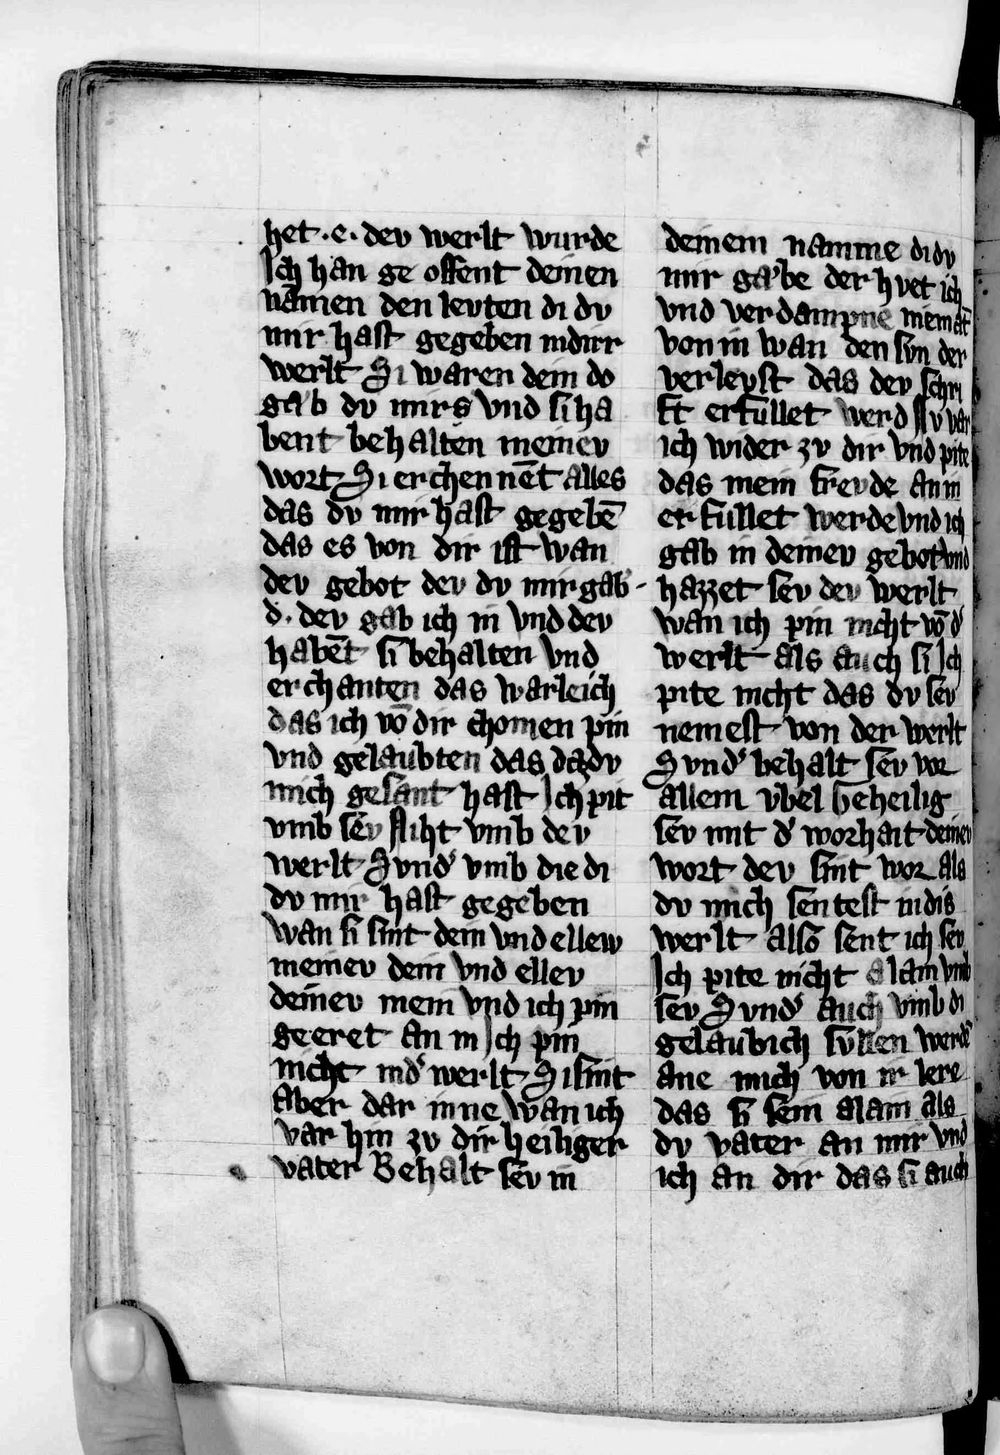 het .e. dev werlt wurde
Ich han ge offent deinen
namen den levten di dv
mir hast gegeben indirr
werlt Si waren dein do
gab dv mirs vnd si ha
bent behalten meinev
wort Si erchennēt alles
das dv mir hast gegebē
das es von dir ist wan
dev gebot dev dv mir gab
d. dev gab ich in vnd dev
habēt si behalten vnd
erchanten das warleich
das ich vō dir chomen pin
vnd gelaubten das dazdv
mich gesant hast Ich pit
vmb sev Niht vmb dev
werlt Svnd' vmb die di
dv mir hast gegeben
wan si sint dein vnd ellew
meinev dein vnd ellev
deinev mein vnd ich pin
geeret an in Ich pin
nicht ind' werlt Si sint
Aber dar inne wan ich
var hin zv dir heiliger
vater Behalt sev in
deinem namme di dv
mir gab'be der hvet ich
vnd verdampne
von in wan den svn der
verleust das dev schri
ft erfullet werd Nv var
ich wider zv dir vnd pite
das mein frevde an in
erfullet werde vnd ich
gab in deinev gebot vnd
hazzet sev dev werlt
wan ich pin nicht vō d'
werlt als auch si Ich
pite nicht das dv sev
nemest von der werlt
Svnd' behalt sev vor
allem vbel Geheilig
sev mit d' worhait deinev
wort dev sint wor als
dv mich sentest in dis
werlt also sent ich sev
Ich pite nicht alain vmb
sev Svnd' auch vmb di
gelaubich sullen werdē
ane mich von ir lere
das si sein alain als
dv vater an mir vnd
ich an dir das si auch